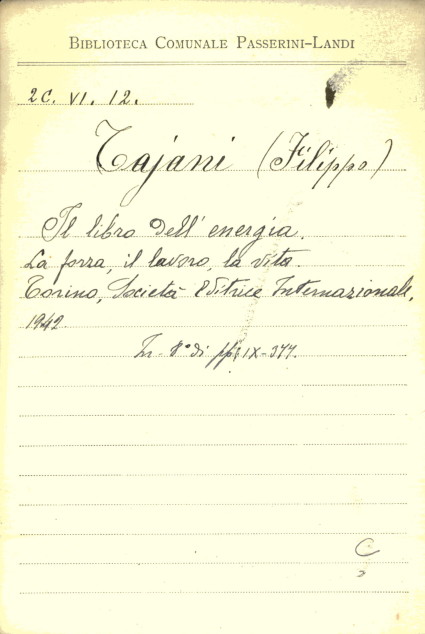 BIBLIOTECA COMUNALE PASSERINI-LANDI
2C. VI. 12.
Tajani (Filippo)
Il libro dell' energia.
La forza, il lavoro, la vita.
Torino, Società Editrice Internazionale,
1942
In-8° di pp. IX-377.
C